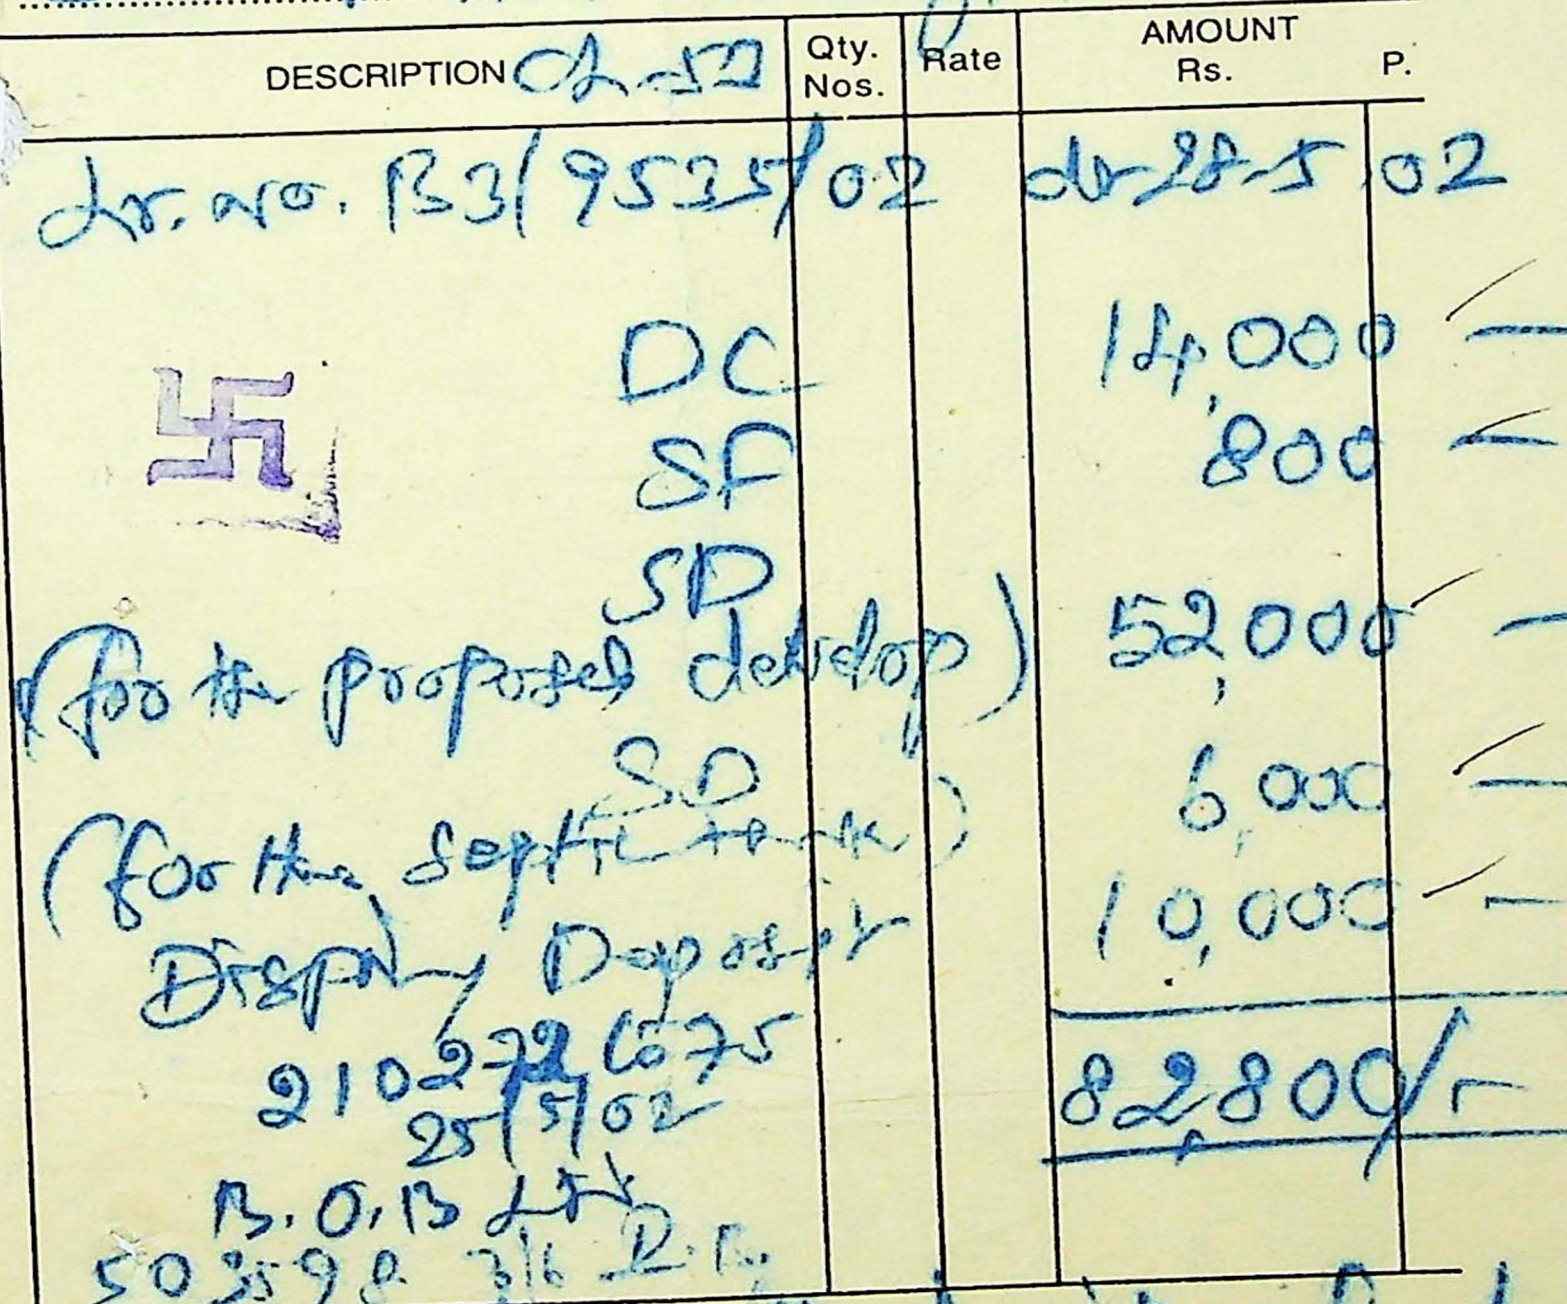 DESCRIPTION Ch-52 Qty. Nos. Rate AMOUNT Rs. P.
Lr. No. B3/9535/02 dt 28-5-02
DC 14,000 —
SF 800 —
SD
(for the proposed develop) 52,000 —
SD 6,000 —
(for the septic tank)
Display Deposit 10,000 —
210272
25/5/02 82,800/-
B.O.B
3/6